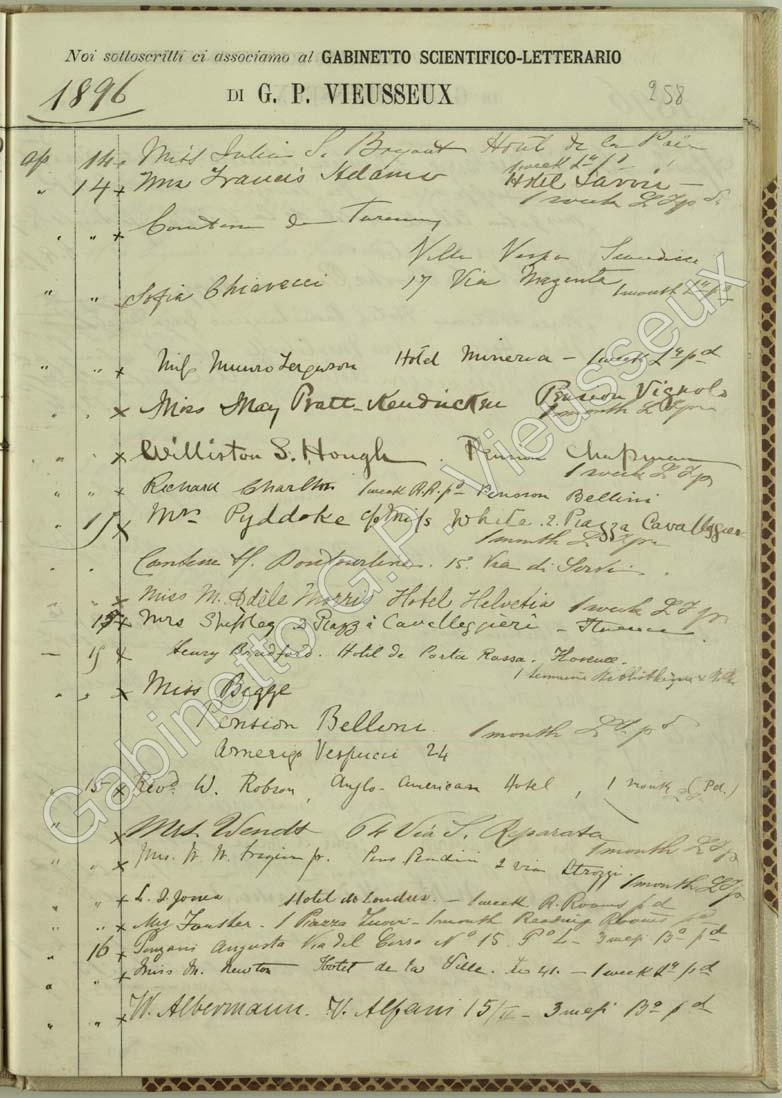 Noi sottoscritti ci associamo al GABINETTO SCIENTIFICO-LETTERARIO
1896 DI G. P. VIEUSSEUX 258
ap 14 Miss Julia S. Bryant Hotel de la Paix
1 week
" 14 x Mrs Francis Adams Hotel Savoie
1 week
" " x Comtesse de
Villa
" " Sofia Chiavacci 17 Via Magenta 1 month
" " x Miss Munro Ferguson Hotel Minerva - 1 week pd
" " x Miss May Pratt-Kendricken Pension Vignolo
1 month
" " x Williston S. Hough. Pension Chapman
1 week
" " x Richard Charlton 1 week R.R. pd Pension Bellini
" 15 x Mrs Pyddoke c/o Miss White. 2. Piazza Cavalleggieri
1 month
" " Comtesse 15. Via di Servi.
" " x Miss M. Adèle Morris Hotel Helvetia 1 week
15 x Mrs Shipley 2 Piazza Cavalleggieri - Florence.
15 x Henry Bradford. Hotel de Porta Rossa. Florence.
1 semaine Bibliothèque
" " x Miss Bigge
Pension Bellini. 1 month pd
Amerigo Vespucci 24
" 15 x Revd W. Robson, Anglo-American Hotel, 1 month (Pd.)
" " x Mrs Wendt 64 Via S. Reparata
1 month
" " x Mrs. Pens Pendini 2 via Strozzi.
1 month
" " x L. J. Jones Hotel de Londres. - 1 week R. Rooms pd
" " x 1 Piazza - 1 month Reading Rooms pd
" 16 x Augusta Via del Corso No 15. Po 1. - 3 mesi Bo pd
" " x Miss M. Newton Hotel de la Ville. No 41. - 1 week pd
" " x W. Albermann. V. Alfani 15/II - 3 mesi Bo pd
Gabinetto G.P. Vieusseux